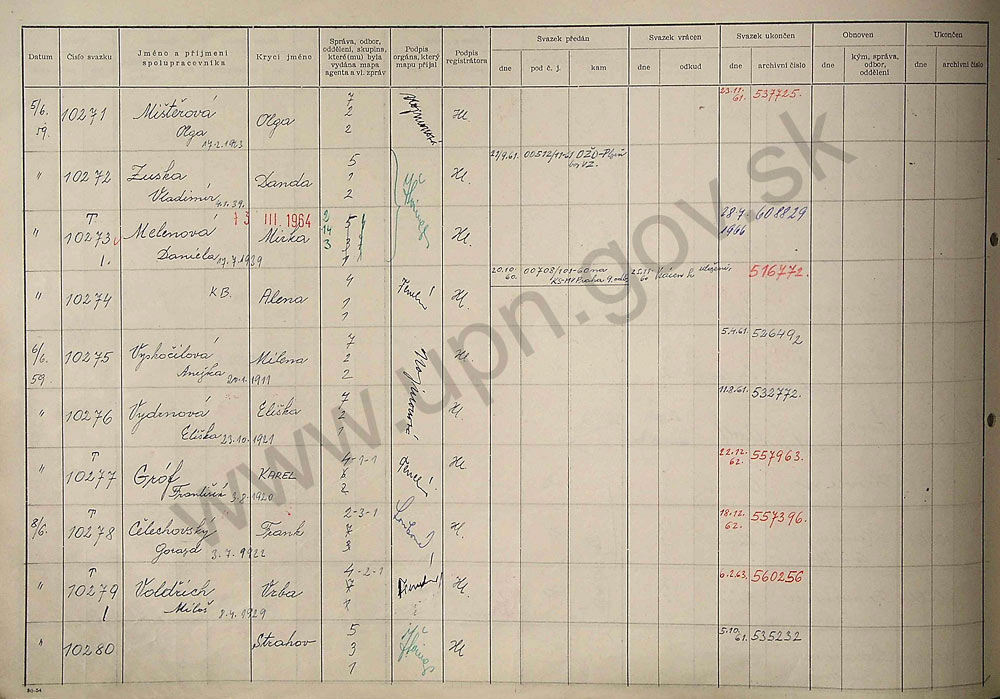 Datum
Číslo svazku
Jméno a příjmení
spolupracovníka
Krycí jméno
Správa, odbor,
oddělení, skupina,
které(mu) byla
vydána mapa
agenta a vl. zpráv
Podpis
orgána, který
mapu přijal
Podpis
registrátora
Svazek předán
dne pod č. j. kam
Svazek vrácen
dne odkud
Svazek ukončen
dne archivní číslo
Obnoven
dne kým, správa,
odbor,
oddělení
Ukončen
dne archivní číslo
5/6. 10271 Mištěrová Olga 7 Hl. 23.11. 537725.
59. Olga 17.2.1923 2 61.
2
" 10272 Zuska Danda 5 Hl. 21/9.61. 00512/11-61 OŽO-Plzeň
Vladimír 4.1.39. 1
2
T 13 III. 1964 2 28.9. 608829
" 10273 Melenová Miřka 14 5 Hl. 1966
1. Daniela 17.7.1939 3 3
1
" 10274 KB. Alena 4 Hl. 20.10. 00708/101-60 na 25.11. 516772.
1 60. KS-MV Praha 9. odb. 60
1
6/6. 10275 Vyskočilová Milena 7 Hl. 5.4.61. 526492
59. Anežka 20.1.1911 2
2
" 10276 Vydrnová Eliška 7 Hl. 11.8.61. 532772.
Eliška 23.10.1921 2
1
T
" 10277 Gróf KAREL 4-1-1 Hl. 22.12. 557963.
František 3.8.1920 6 62.
2
T
8/6. 10278 Čelechovský Frank 2-3-1 Hl. 18.12. 557396.
Gorazd 3.7.1922 7 62.
3
T
" 10279 Voldřich Vrba 4-2-1 Hl. 6.2.63. 560256
1 Miloš 8.4.1929 7
1
" 10280 Strahov 5 Hl. 5.10. 535232
3 61.
1
80-54
www.upn.gov.sk